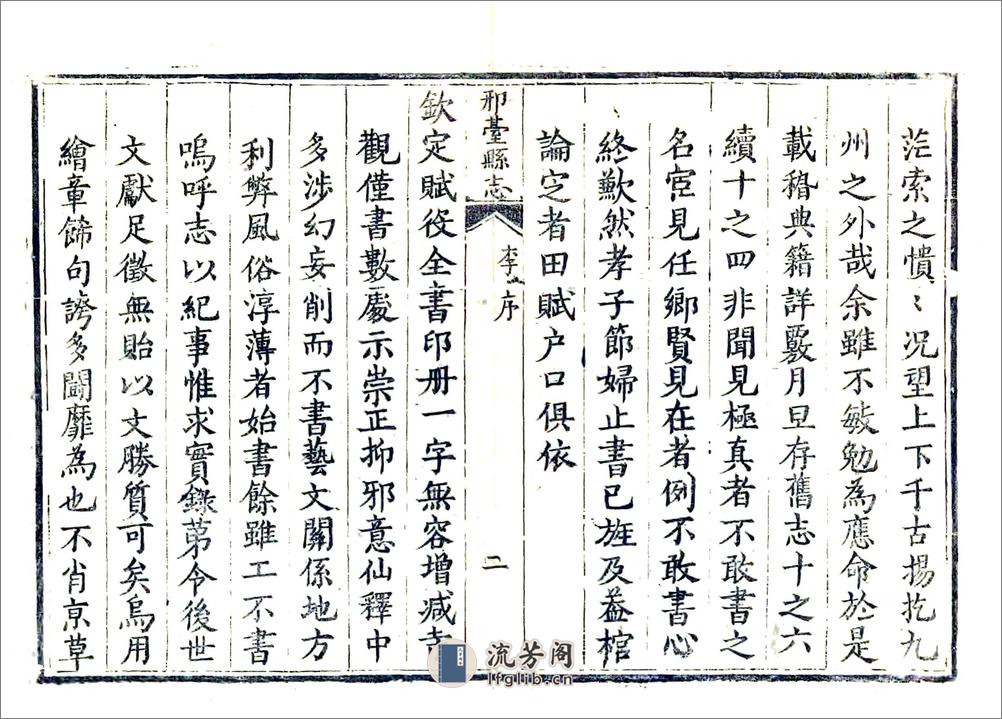 茫索之憒〻况望上下千古揚扢九
州之外哉余雖不敏勉為應命於是
載稽典籍詳覈月旦存舊志十之六
續十之四非聞見極真者不敢書之
名宦見任鄉賢見在者例不敢書心
終歉然孝子節婦止書已旌及葢棺
論定者田賦户口俱依
邢臺縣志
李序
二
欽定賦役全書印册一字無容增減寺
觀僅書數處示崇正抑邪意仙釋中
多涉幻妄削而不書藝文關係地方
利弊風俗淳薄者始書餘雖工不書
嗚呼志以紀事惟求實錄第令後世
文獻足徵無貽以文勝質可矣烏用
繪章餙句誇多鬭靡為也不肖京草
流芳阁
lfglib.cn